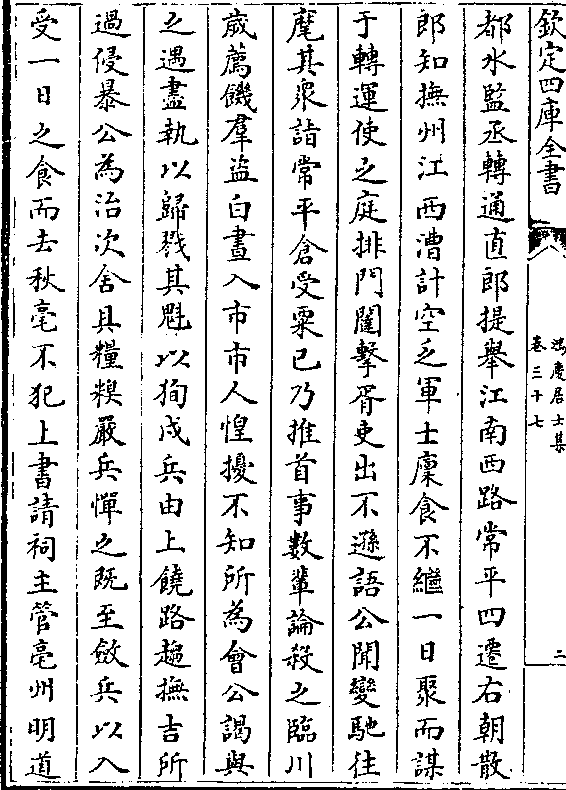 欽定四庫全書
鴻慶居士集
卷三十七
二
都水監丞轉通直郎提舉江南西路常平四遷右朝散
郎知撫州江西漕計空乏軍士廩食不繼一日聚而謀
于轉運使之庭排門闥擊胥吏出不遜語公聞變馳往
麾其衆詣常平倉受粟已乃推首事數輩論殺之臨川
歲薦饑羣盜白晝入市市人惶擾不知所為會公謁與
之遇盡執以歸戮其魁以狥戍兵由上饒路趨撫吉所
過侵暴公為治次舍具糧糗嚴兵憚之既至斂兵以入
受一日之食而去秋毫不犯上書請祠主管亳州明道